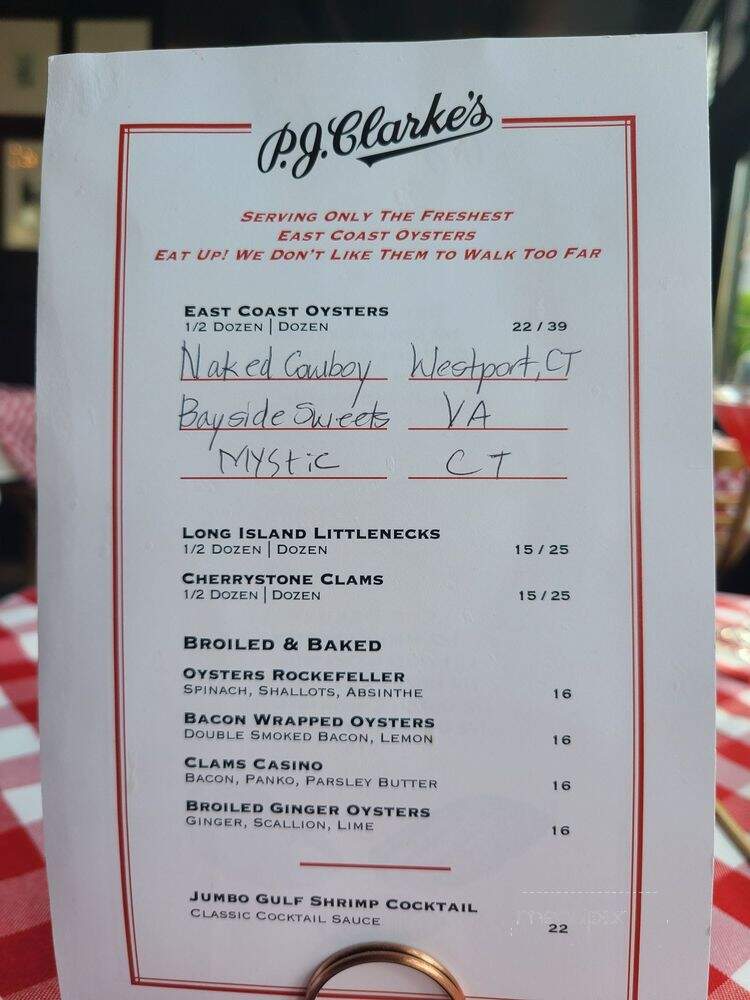 P.J. Clarke's
Serving Only The Freshest
East Coast Oysters
Eat Up! We Don't Like Them to Walk Too Far
East Coast Oysters
1/2 Dozen | Dozen 22 / 39
Naked Cowboy Westport, CT
Bayside Sweets VA
Mystic CT
Long Island Littlenecks
1/2 Dozen | Dozen 15 / 25
Cherrystone Clams
1/2 Dozen | Dozen 15 / 25
Broiled & Baked
Oysters Rockefeller
Spinach, Shallots, Absinthe 16
Bacon Wrapped Oysters
Double Smoked Bacon, Lemon 16
Clams Casino
Bacon, Panko, Parsley Butter 16
Broiled Ginger Oysters
Ginger, Scallion, Lime 16
Jumbo Gulf Shrimp Cocktail
Classic Cocktail Sauce 22